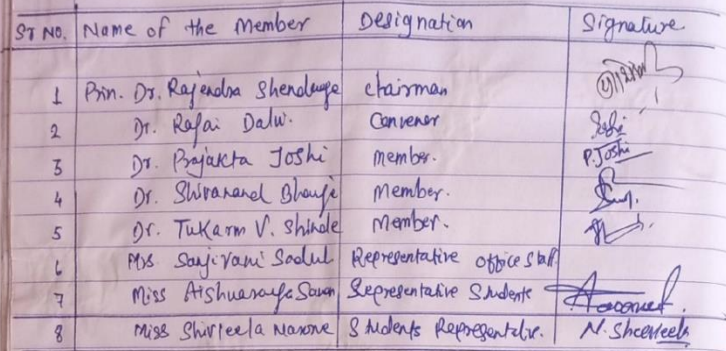 Sr No. Name of the Member Designation Signature
1 Prin. Dr. Rajendra Shendage Chairman
2 Dr. Rafai Dalvi. Convener
3 Dr. Prajakta Joshi Member. P. Joshi
4 Dr. Shivanand Bhanje Member.
5 Dr. Tukarm V. Shinde Member.
6 Mrs Sanjivani Sadul Representative office staff
7 Miss Aishwarya Representative Students
8 Miss Shivleela Students Representative. N.